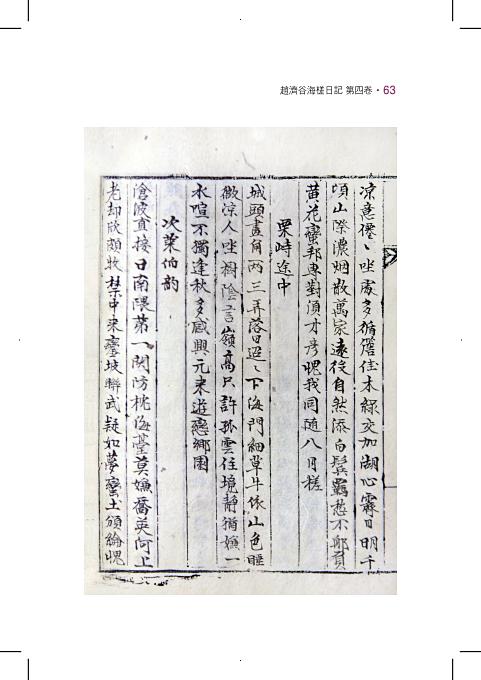 趙濟谷海槎日記 第四卷 · 63
凉意僊〻坐處多循簷佳木綠交加湖心霽日明千
頃山際濃烟散萬家遠役自然添白鬂羈愁不耶負
黄花蠻邦專對須才彦愧我同随八月槎
栗峙途中
城頭畫角兩三弄落日迢〻下海門細草牛依山色睡
微凉人坐樹陰言嶺高只許孤雲住境静猶嫌一
水喧不獨逢秋多感興元來遊戀鄉園
次萊伯韵
滄波直接日南隈第一關防枕海臺莫嫌番英何上
老却欣頗牧禁中來鑾坡聯武疑如夢蠻土頒綸愧